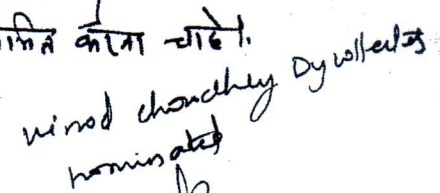 करना चाहें।
vinod choudhry Dy collector
nominated